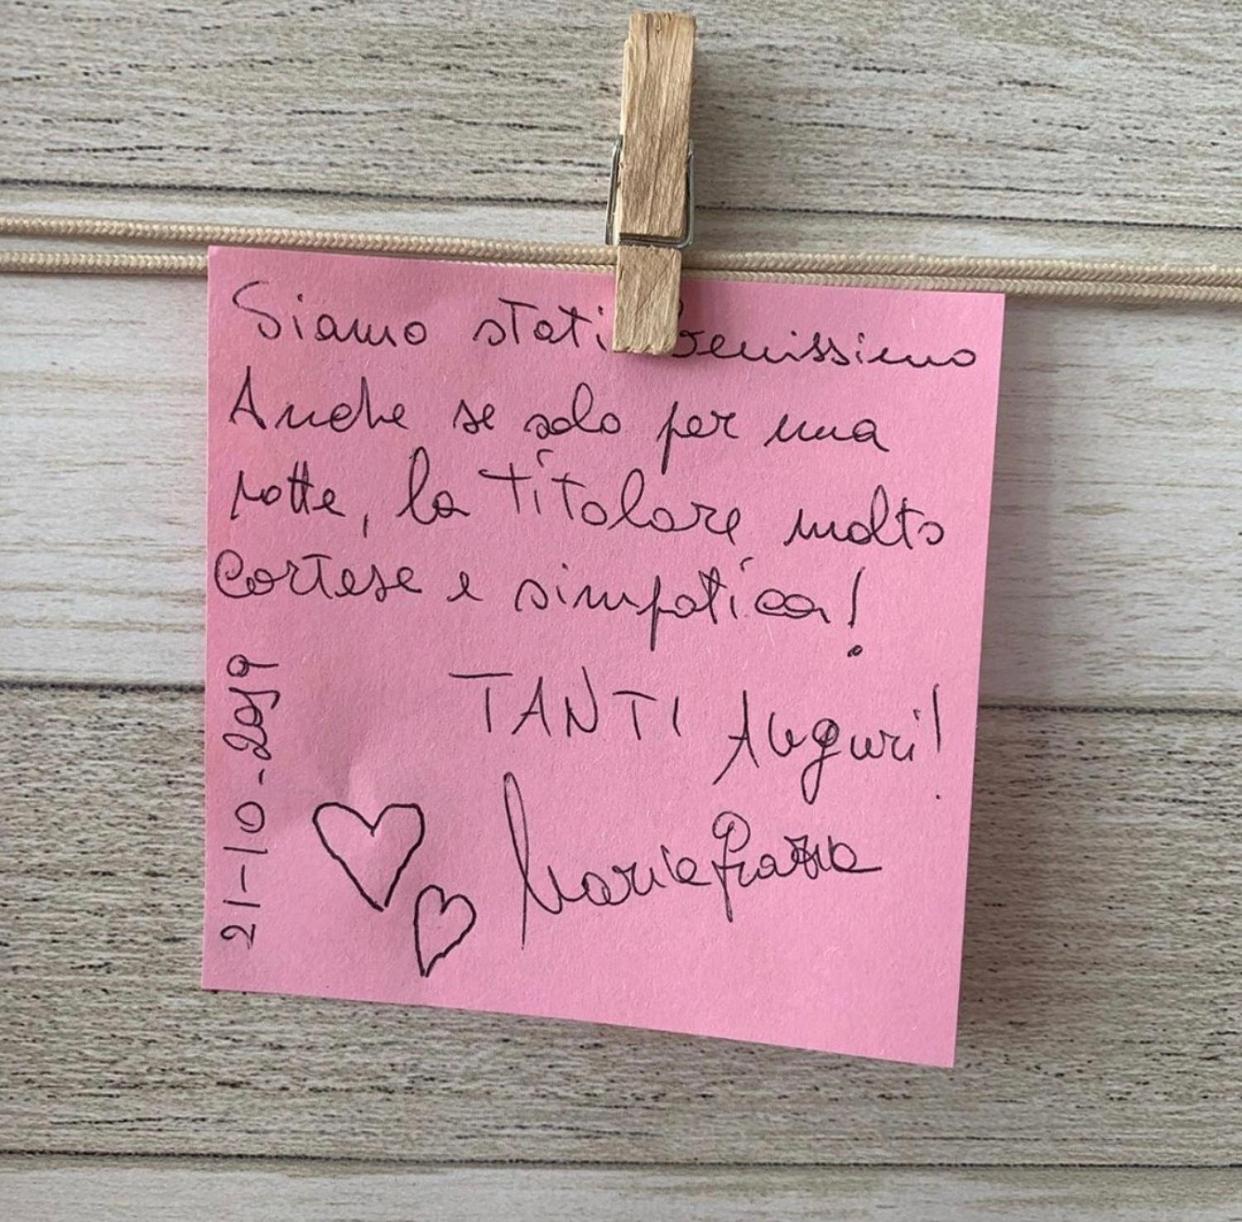 Siamo stati benissimo
Anche se solo per una
notte, la titolare molto
cortese e simpatica!
TANTI Auguri!
Mariagrazia
21-10-2019